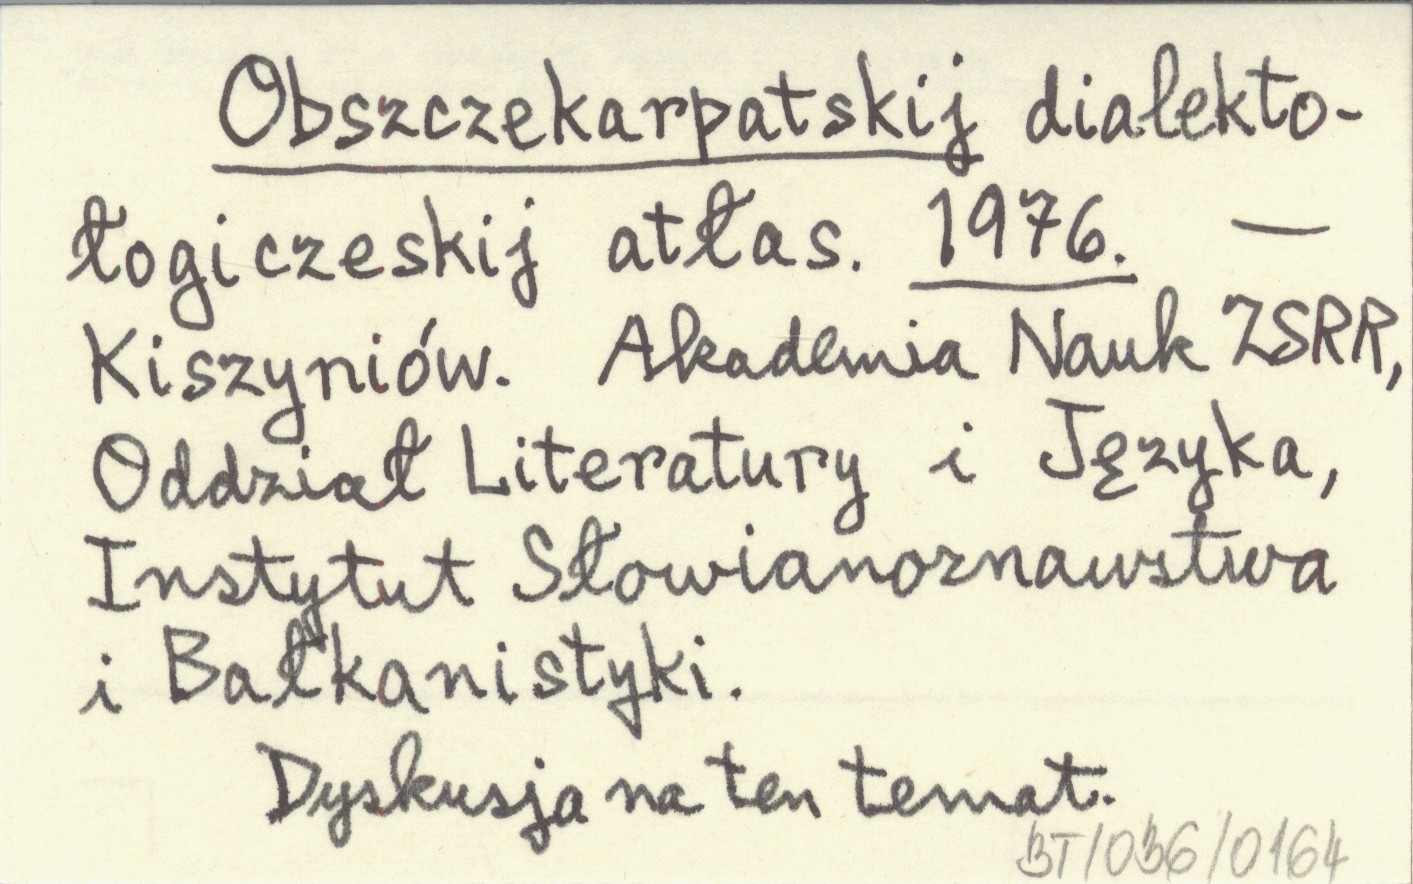 Obszczekarpatskij dialekto-
łogiczeskij atłas. 1976. —
Kiszyniów. Akademia Nauk ZSRR,
Oddział Literatury i Języka,
Instytut Słowianoznawstwa
i Bałkanistyki.
Dyskusja na ten temat.
BT/OB6/0164